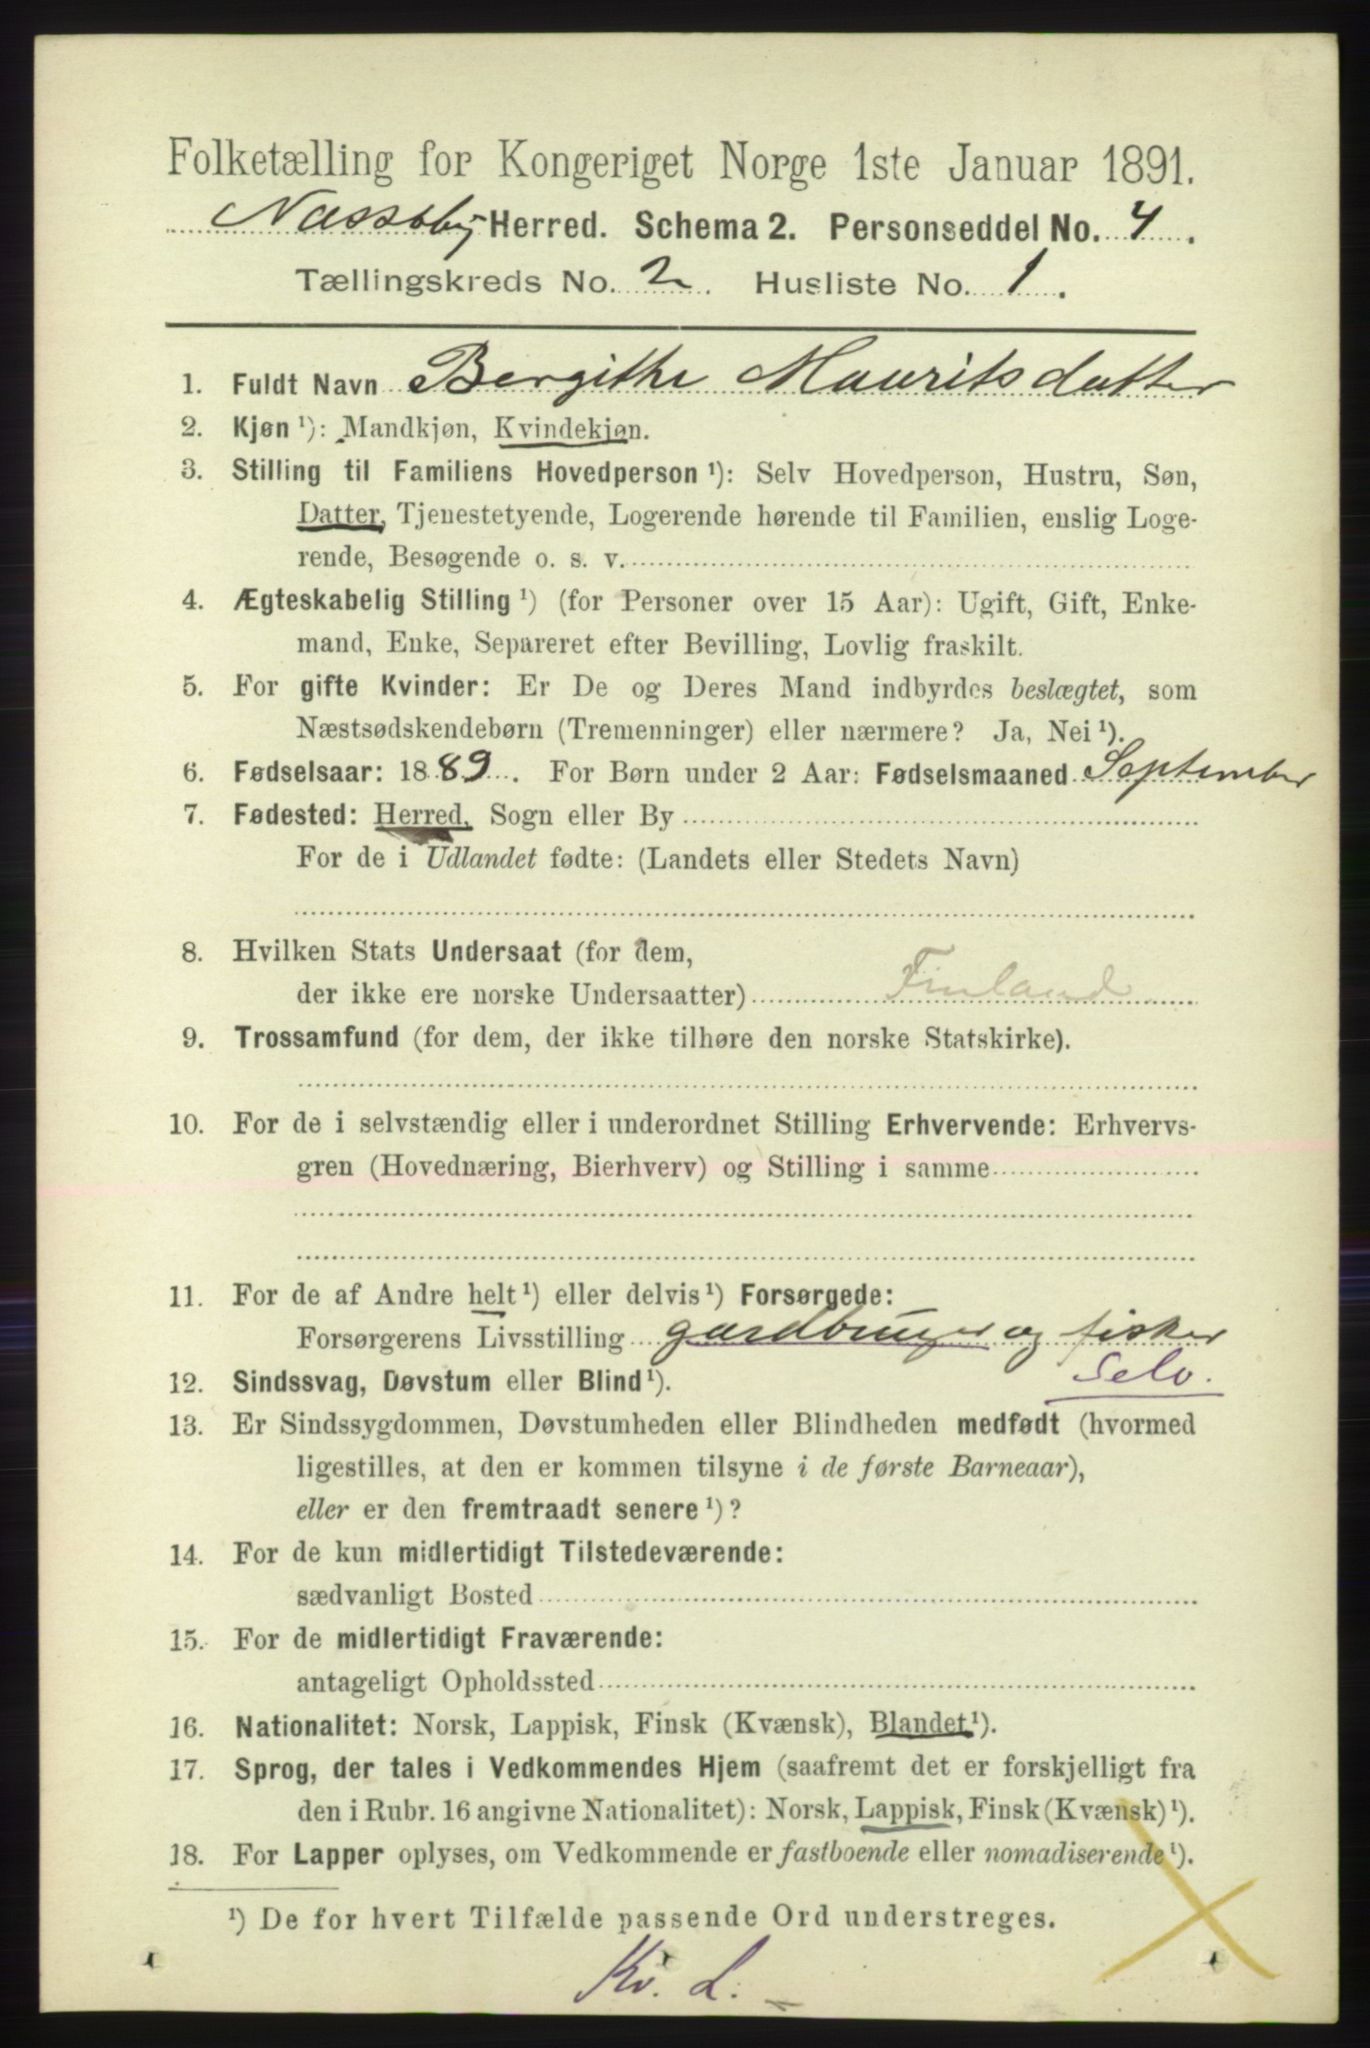 Folketælling for Kongeriget Norge 1ste Januar 1891.
Næsseby Herred. Schema 2. Personseddel No. 4.
Tællingskreds No. 2. Husliste No. 1.
1. Fuldt Navn Bergithe Mauritsdatter
2. Kjøn ¹): Mandkjøn, Kvindekjøn.
3. Stilling til Familiens Hovedperson ¹): Selv Hovedperson, Hustru, Søn,
Datter, Tjenestetyende, Logerende hørende til Familien, enslig Loge-
rende, Besøgende o. s. v.
4. Ægteskabelig Stilling ¹) (for Personer over 15 Aar): Ugift, Gift, Enke-
mand, Enke, Separeret efter Bevilling, Lovlig fraskilt.
5. For gifte Kvinder: Er De og Deres Mand indbyrdes beslægtet, som
Næstsødskendebørn (Tremenninger) eller nærmere? Ja, Nei ¹).
6. Fødselsaar: 1889. For Børn under 2 Aar: Fødselsmaaned September
7. Fødested: Herred, Sogn eller By
For de i Udlandet fødte: (Landets eller Stedets Navn)
8. Hvilken Stats Undersaat (for dem,
der ikke ere norske Undersaatter) Finland
9. Trossamfund (for dem, der ikke tilhøre den norske Statskirke).
10. For de i selvstændig eller i underordnet Stilling Erhvervende: Erhvervs-
gren (Hovednæring, Bierhverv) og Stilling i samme
11. For de af Andre helt ¹) eller delvis ¹) Forsørgede:
Forsørgerens Livsstilling gardbruger og fisker
Selv.
12. Sindssvag, Døvstum eller Blind ¹).
13. Er Sindssygdommen, Døvstumheden eller Blindheden medfødt (hvormed
ligestilles, at den er kommen tilsyne i de første Barneaar),
eller er den fremtraadt senere ¹)?
14. For de kun midlertidigt Tilstedeværende:
sædvanligt Bosted
15. For de midlertidigt Fraværende:
antageligt Opholdssted
16. Nationalitet: Norsk, Lappisk, Finsk (Kvænsk), Blandet ¹).
17. Sprog, der tales i Vedkommendes Hjem (saafremt det er forskjelligt fra
den i Rubr. 16 angivne Nationalitet): Norsk, Lappisk, Finsk (Kvænsk) ¹).
18. For Lapper oplyses, om Vedkommende er fastboende eller nomadiserende ¹).
¹) De for hvert Tilfælde passende Ord understreges.
Kv. L.